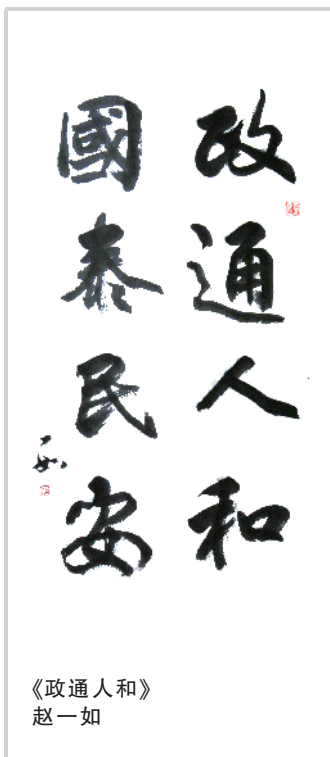 政通人和
國泰民安
一如
《政通人和》
赵一如